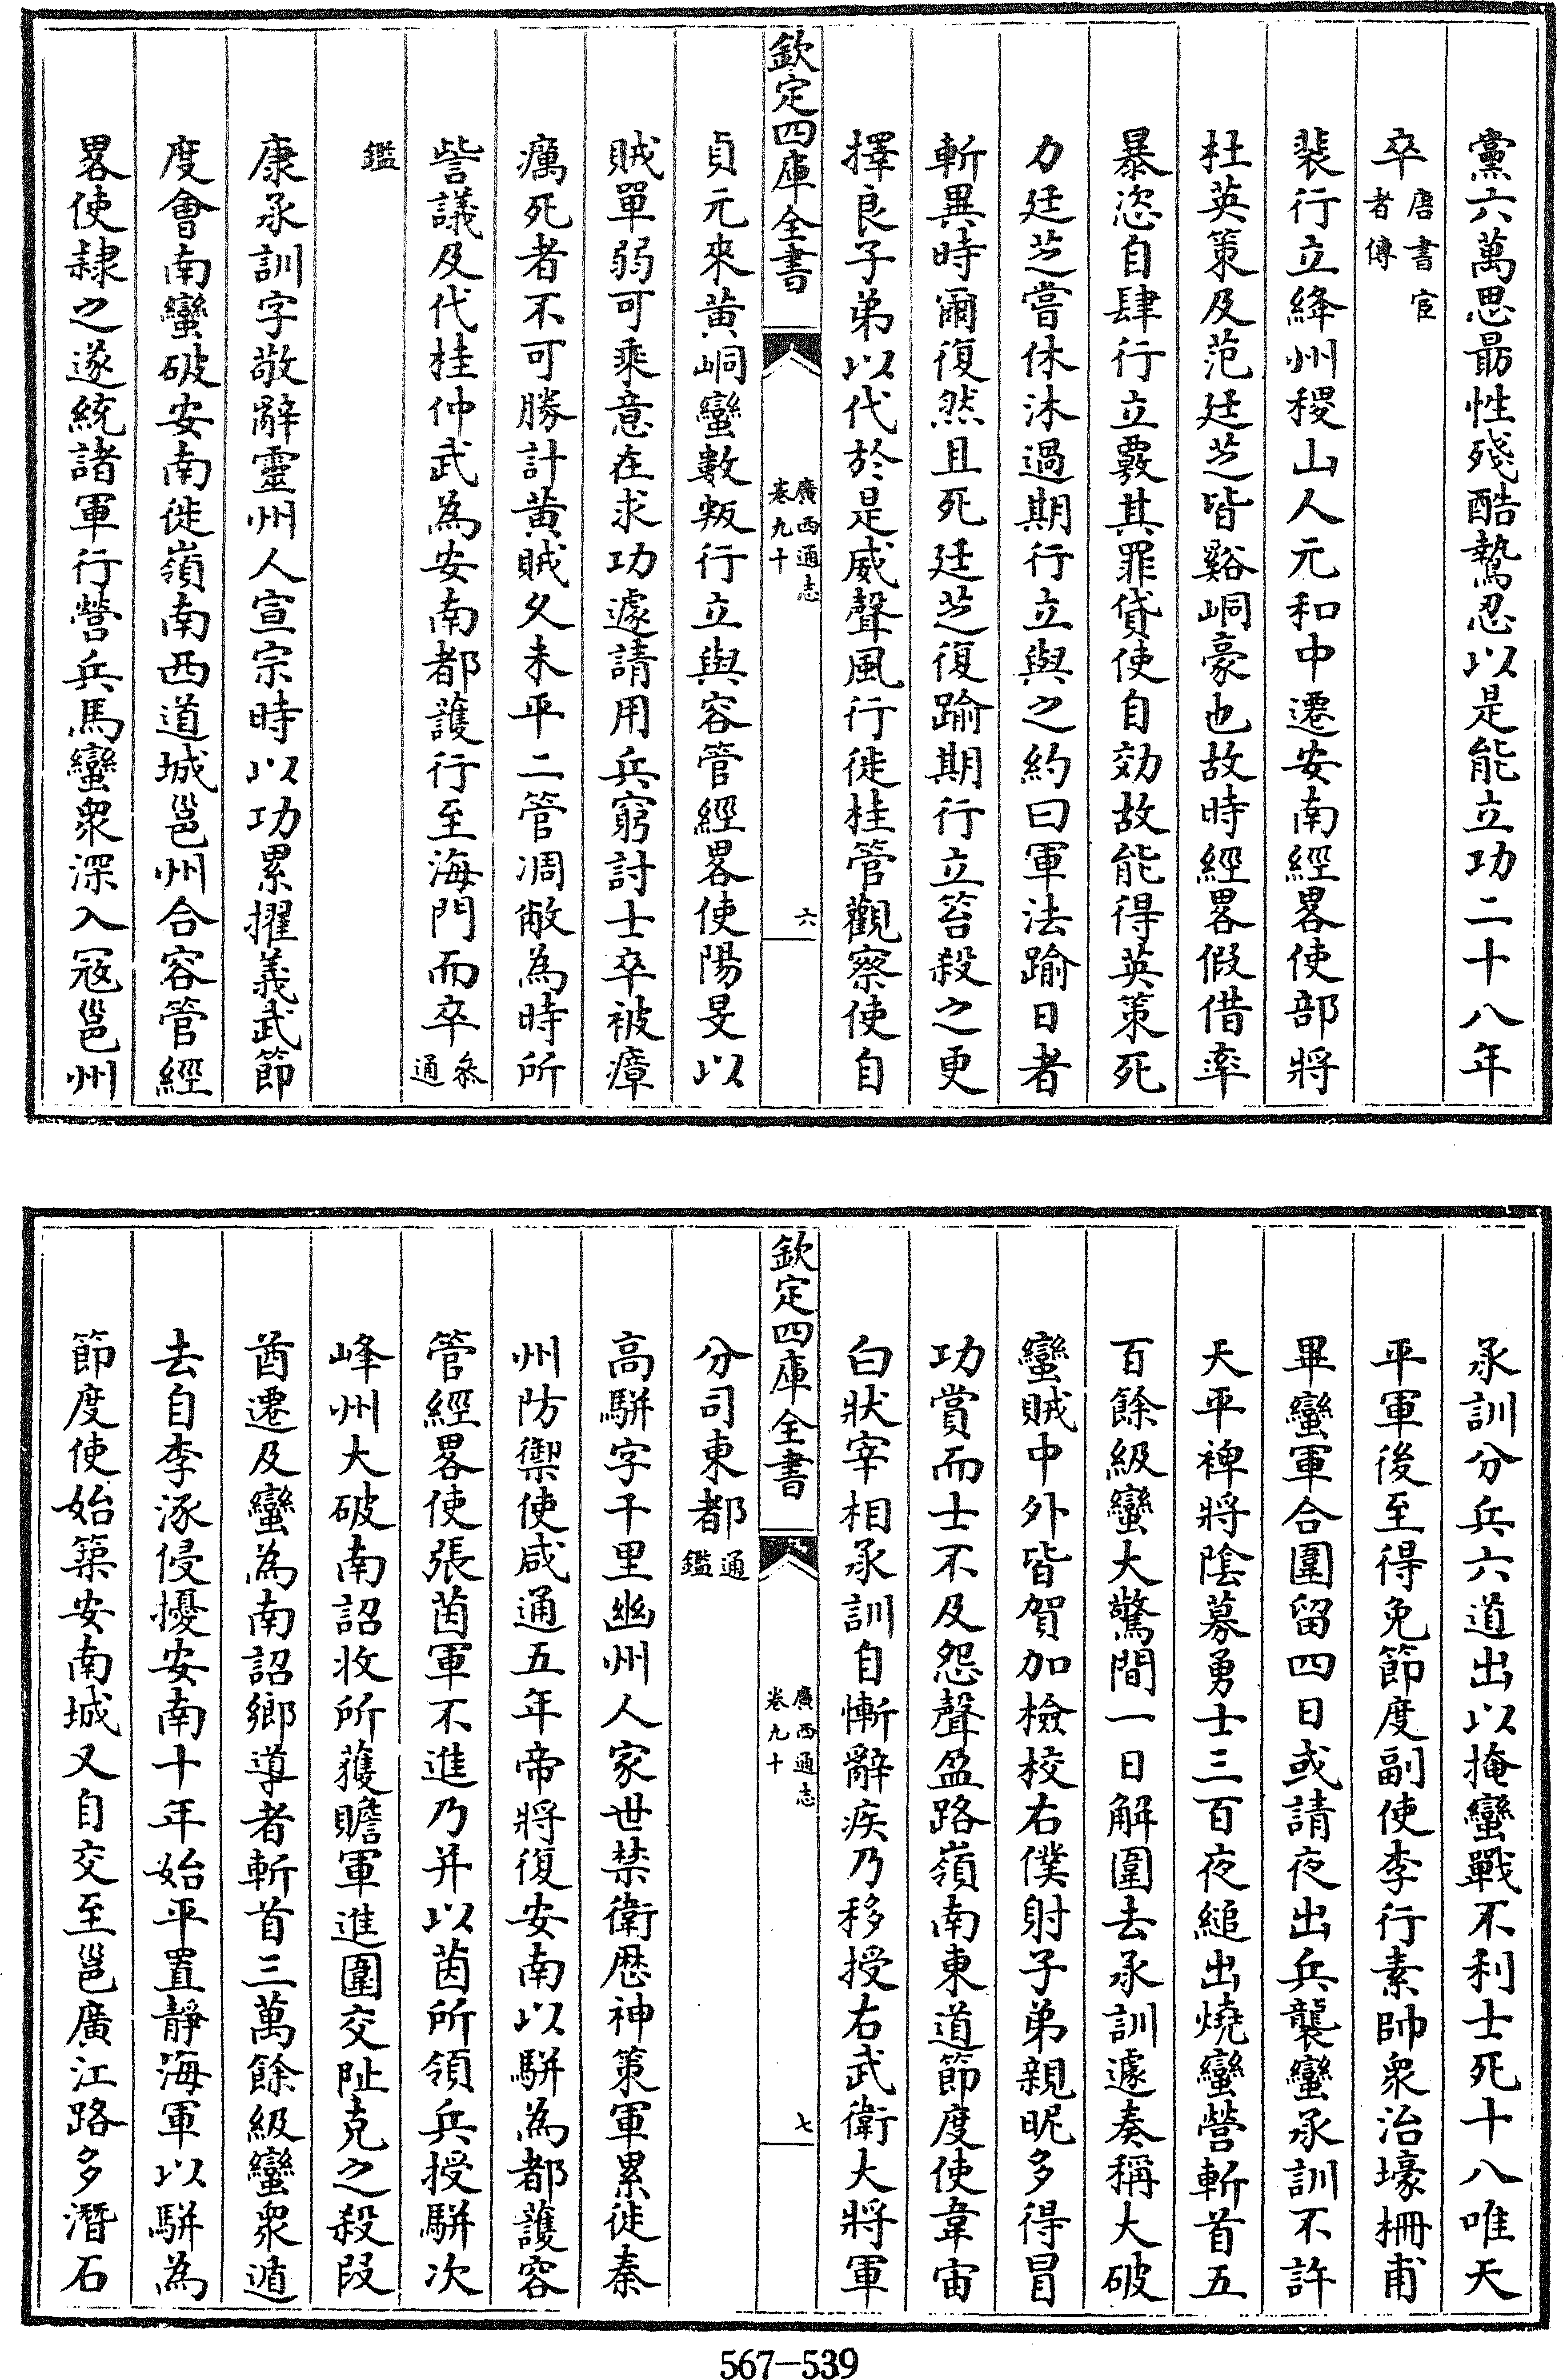 黨六萬思勗性殘酷鷙忍以是能立功二十八年
卒唐書宦者傳
裴行立絳州稷山人元和中遷安南經畧使部將
杜英策及范廷芝皆谿峒豪也故時經畧假借率
暴恣自肆行立覈其罪貸使自効故能得英策死
力廷芝嘗休沐過期行立與之約曰軍法踰日者
斬異時爾復然且死廷芝復踰期行立笞殺之更
擇良子弟以代於是威聲風行徙桂管觀察使自
欽定四庫全書
廣西通志
卷九十
六
貞元來黃峒蠻數叛行立與容管經畧使陽旻以
賊單弱可乘意在求功遽請用兵窮討士卒被瘴
癘死者不可勝計黃賊久未平二管凋敝為時所
訾議及代桂仲武為安南都護行至海門而卒叅通
鑑
康承訓字敬辭靈州人宣宗時以功累擢義武節
度會南蠻破安南徙嶺南西道城邕州合容管經
畧使隷之遂統諸軍行營兵馬蠻衆深入宼邕州
承訓分兵六道出以掩蠻戰不利士死十八唯天
平軍後至得免節度副使李行素帥衆治壕柵甫
畢蠻軍合圍留四日或請夜出兵襲蠻承訓不許
天平裨將陰募勇士三百夜縋出燒蠻營斬首五
百餘級蠻大驚間一日解圍去承訓遽奏稱大破
蠻賊中外皆賀加檢校右僕射子弟親昵多得冒
功賞而士不及怨聲盈路嶺南東道節度使韋宙
白狀宰相承訓自慚辭疾乃移授右武衛大將軍
欽定四庫全書
廣西通志
卷九十
七
分司東都通鑑
高駢字千里幽州人家世禁衛歷神策軍累徙秦
州防禦使咸通五年帝將復安南以駢為都護容
管經畧使張茵軍不進乃并以茵所領兵授駢次
峰州大破南詔收所獲贍軍進圍交趾克之殺段
酋遷及蠻為南詔鄉導者斬首三萬餘級蠻衆遁
去自李涿侵擾安南十年始平置靜海軍以駢為
節度使始築安南城又自交至邕廣江路多潛石
567-539